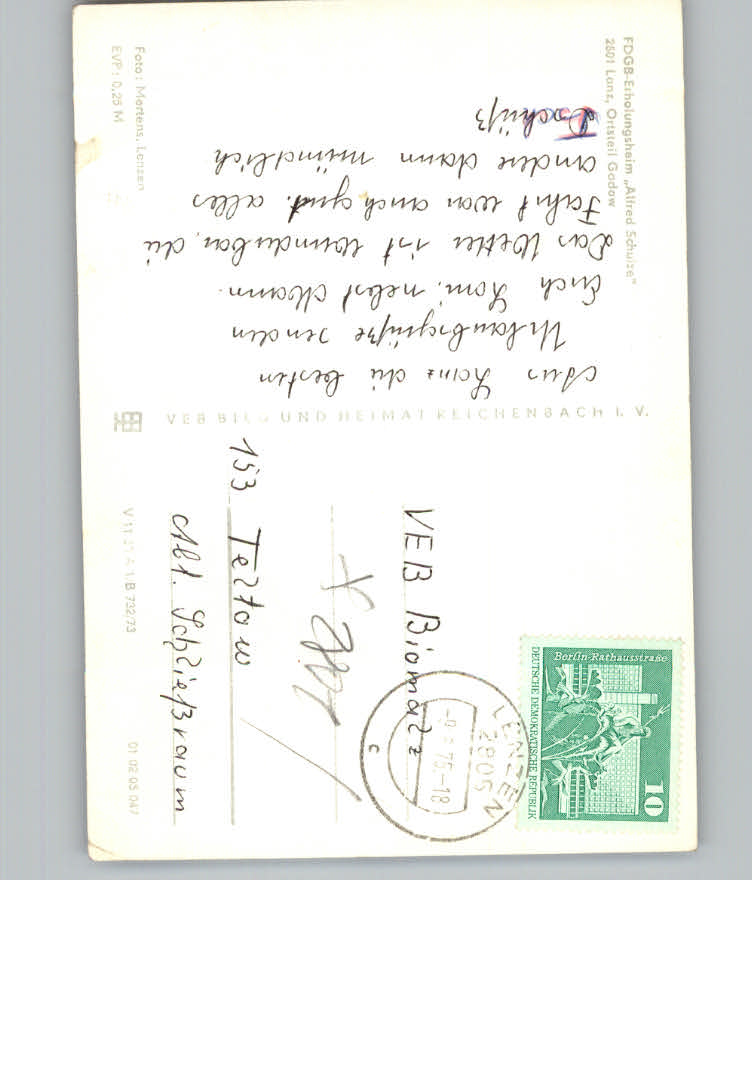 FDGB-Erholungsheim „Alfred Schulze"
2801 Lanz, Ortsteil Gadow
Aus Lanz die besten
Urlaubsgrüße senden
Euch Romi, nebst Mann.
Das Wetter ist wunderbar, die
Fahrt war auch gut. alles
andere dann mündlich
Tschüß
Foto: Mertens, Lenzen
EVP: 0,25 M
VEB BILD UND HEIMAT REICHENBACH I. V.
Berlin-Rathausstraße
DEUTSCHE DEMOKRATISCHE REPUBLIK
10
LENZEN
2805
75-18
c
VEB Biomalz
153 Teltow
Abt. Schließraum
V 11 A 1/B 732/73
01 02 05 047